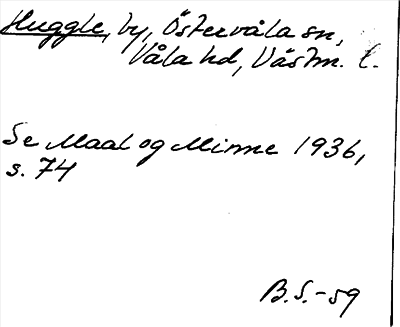 Huggle, by, Östervåla sn,
Våla hd, Västm. l.
Se Maal og Minne 1936,
s. 74
B.S.-59